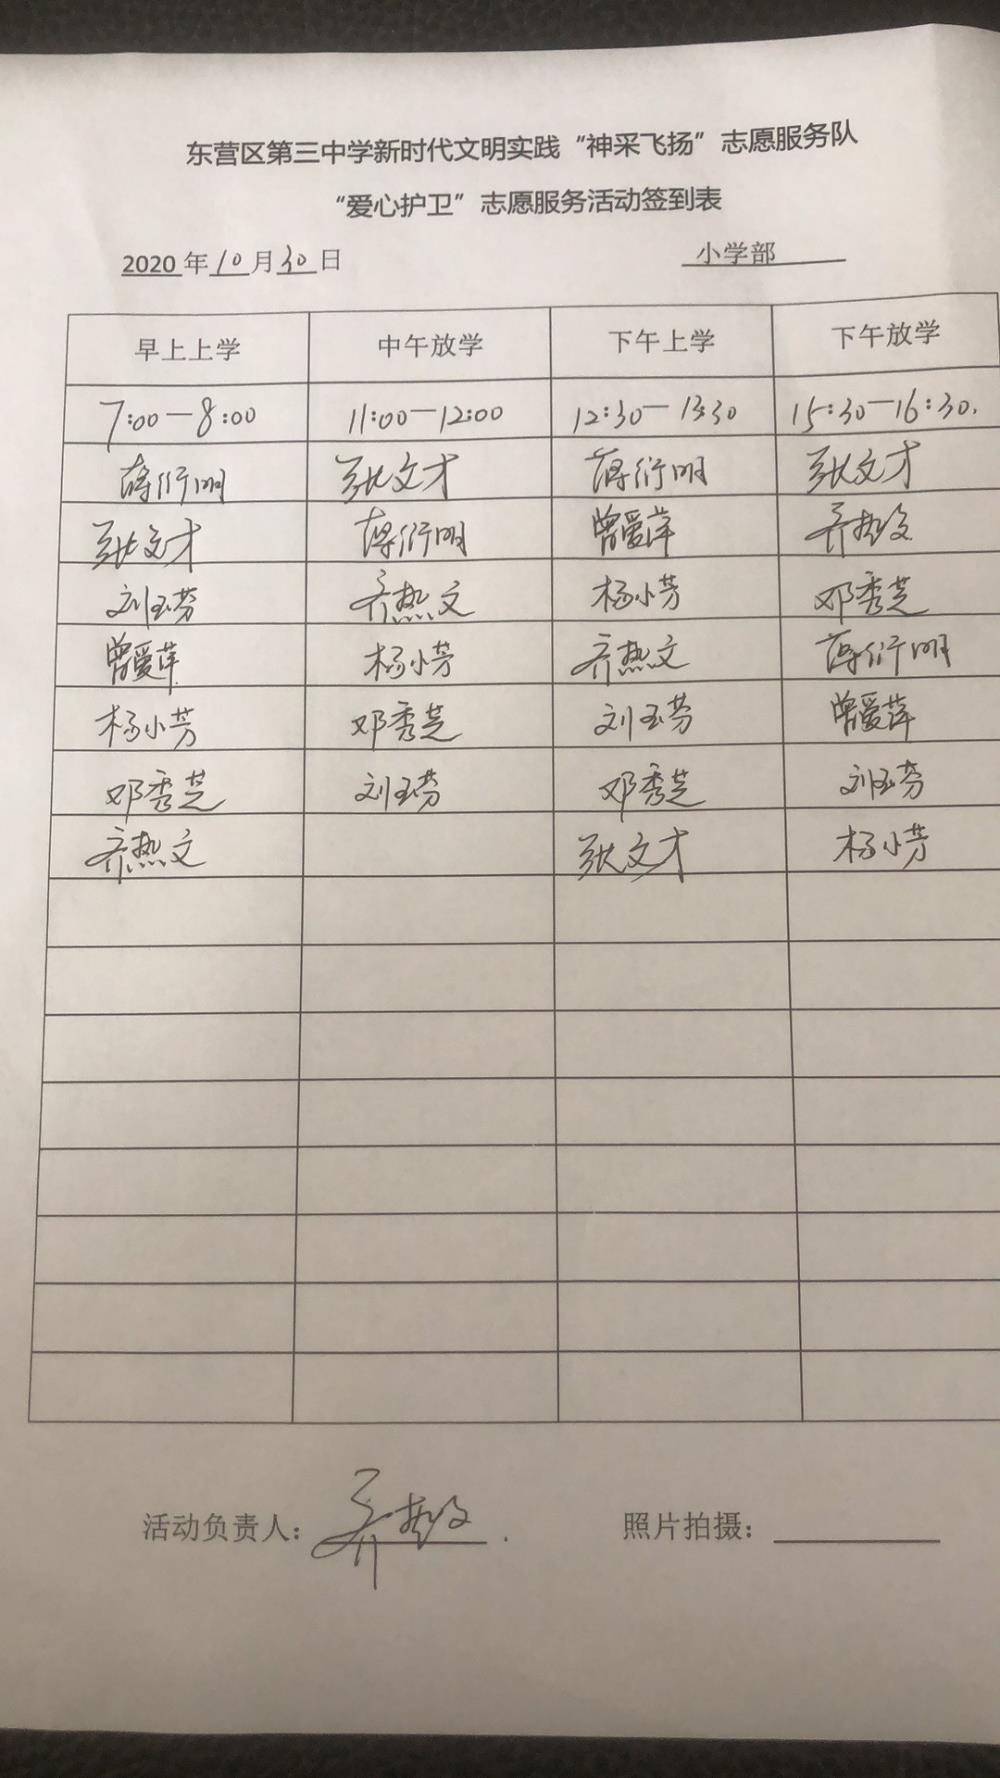 东营区第三中学新时代文明实践“神采飞扬”志愿服务队
“爱心护卫”志愿服务活动签到表
2020年10月30日 小学部
早上上学 中午放学 下午上学 下午放学
7:00—8:00 11:00—12:00 12:30—13:30 15:30—16:30.
蒋衍明 张文才 蒋衍明 张文才
张文才 蒋衍明 曾爱萍 齐热文
刘玉芬 齐热文 杨小芳 邓秀芝
曾爱萍 杨小芳 齐热文 蒋衍明
杨小芳 邓秀芝 刘玉芬 曾爱萍
邓秀芝 刘玉芬 邓秀芝 刘玉芬
齐热文 张文才 杨小芳
活动负责人：齐热文. 照片拍摄：